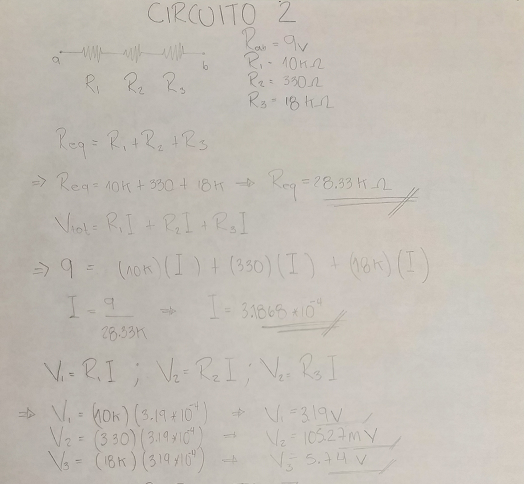 CIRCUITO 2
a b
R₁ R₂ R₃
= 9V
R₁ = 10KΩ
R₂ = 330Ω
R₃ = 18KΩ
Req = R₁ + R₂ + R₃
⇒ Req = 10K + 330 + 18K ⇒ Req = 28.33 KΩ
Vtot = R₁I + R₂I + R₃I
⇒ 9 = (10K)(I) + (330)(I) + (18K)(I)
I = 9/28.33K ⇒ I = 3.1868×10⁻⁴
V₁ = R₁I ; V₂ = R₂I ; V₂ = R₃I
⇒ V₁ = (10K)(3.19×10⁻⁴) ⇒ V₁ = 3.19V
V₂ = (330)(3.19×10⁻⁴) ⇒ V₂ = 105.27mV
V₃ = (18K)(3.19×10⁻⁴) ⇒ V₃ = 5.74V